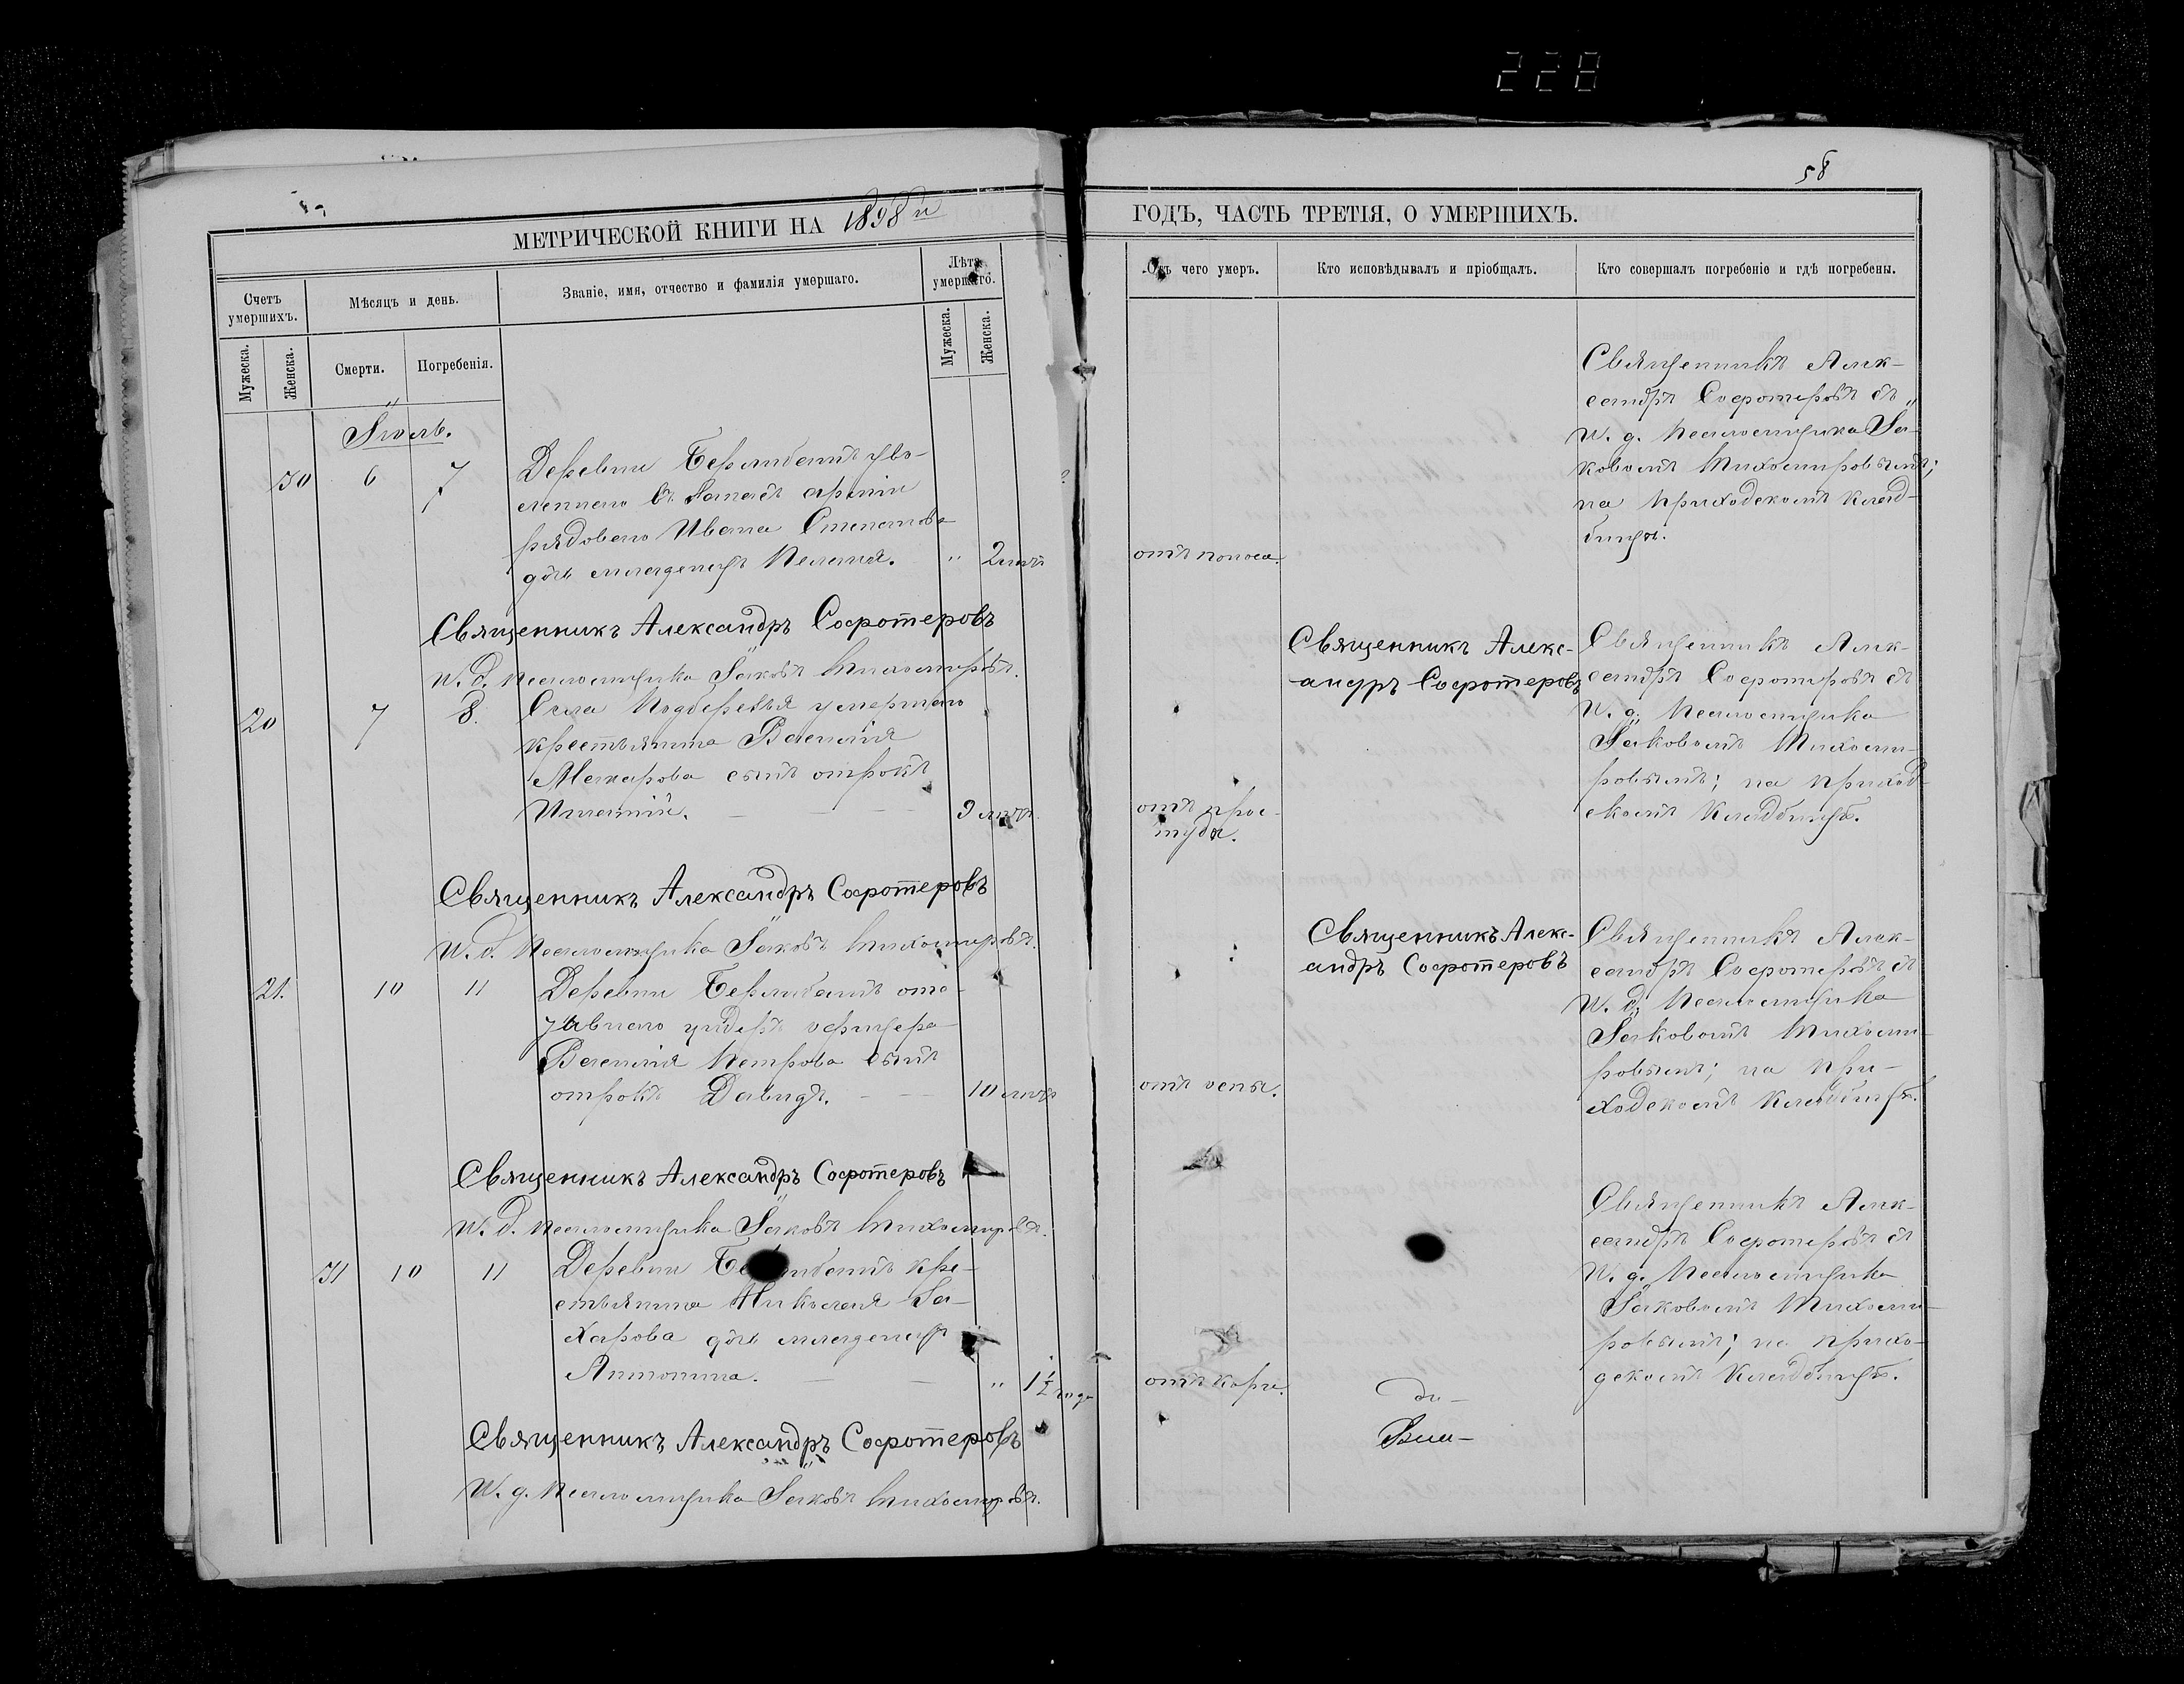 228
58
МЕТРИЧЕСКОЙ КНИГИ НА 1898й
ГОДЪ, ЧАСТЬ ТРЕТІЯ, О УМЕРШИХЪ.
Счетъ умершихъ.
Мѣсяцъ и день.
Званіе, имя, отчество и фамилія умершаго.
Лѣта умершаго.
Мужеска.
Женска.
Смерти.
Погребенія.
Мужеска.
Женска.
Отъ чего умеръ.
Кто исповѣдывалъ и пріобщалъ.
Кто совершалъ погребеніе и гдѣ погребены.
Іюль.
30 6 7
Деревни уво-
леннаго въ запасъ арміи
рядоваго Ивана Степанова
дочь младенецъ Пелагія. " 2 лѣтъ
отъ поноса.
Священникъ Алек-
сандръ Софотеровъ съ
и. д. псаломщика Іа-
ковомъ Тихомировымъ;
на приходскомъ клад-
бищѣ.
Священникъ Александръ Софотеровъ
И. д. псаломщика Іаковъ Тихомировъ.
20 7 8.
Села Подберезья умершаго
крестьянина Василія
Макарова сынъ отрокъ
Игнатій. 9 лѣтъ.
отъ прос-
туды.
Священникъ Алекс-
андръ Софотеровъ
Священникъ Алек-
сандръ Софотеровъ съ
и. д. псаломщика
Іаковомъ Тихоми-
ровымъ; на приход-
скомъ кладбищѣ.
Священникъ Александръ Софотеровъ
И. д. псаломщика Іаковъ Тихомировъ.
21. 10 11
Деревни от-
унтеръ офицера
Василія Петрова сынъ
отрокъ Давидъ. 10 лѣтъ
отъ оспы.
Священникъ Алекс-
андръ Софотеровъ
Священникъ Алек-
сандръ Софотеровъ съ
и. д. псаломщика
Іаковомъ Тихоми-
ровымъ; на при-
ходскомъ кладбищѣ.
Священникъ Александръ Софотеровъ
И. д. псаломщика Іаковъ Тихомировъ.
31 10 11
Деревни кре-
стьянина Николая За-
харова дочь младенецъ
Антонина. " 1½ года
отъ кори.
Священникъ Алек-
сандръ Софотеровъ съ
и. д. псаломщика
Іаковомъ Тихоми-
ровымъ; на прихо-
дскомъ кладбищѣ.
Священникъ Александръ Софотеровъ
И. д. псаломщика Іаковъ Тихомировъ.